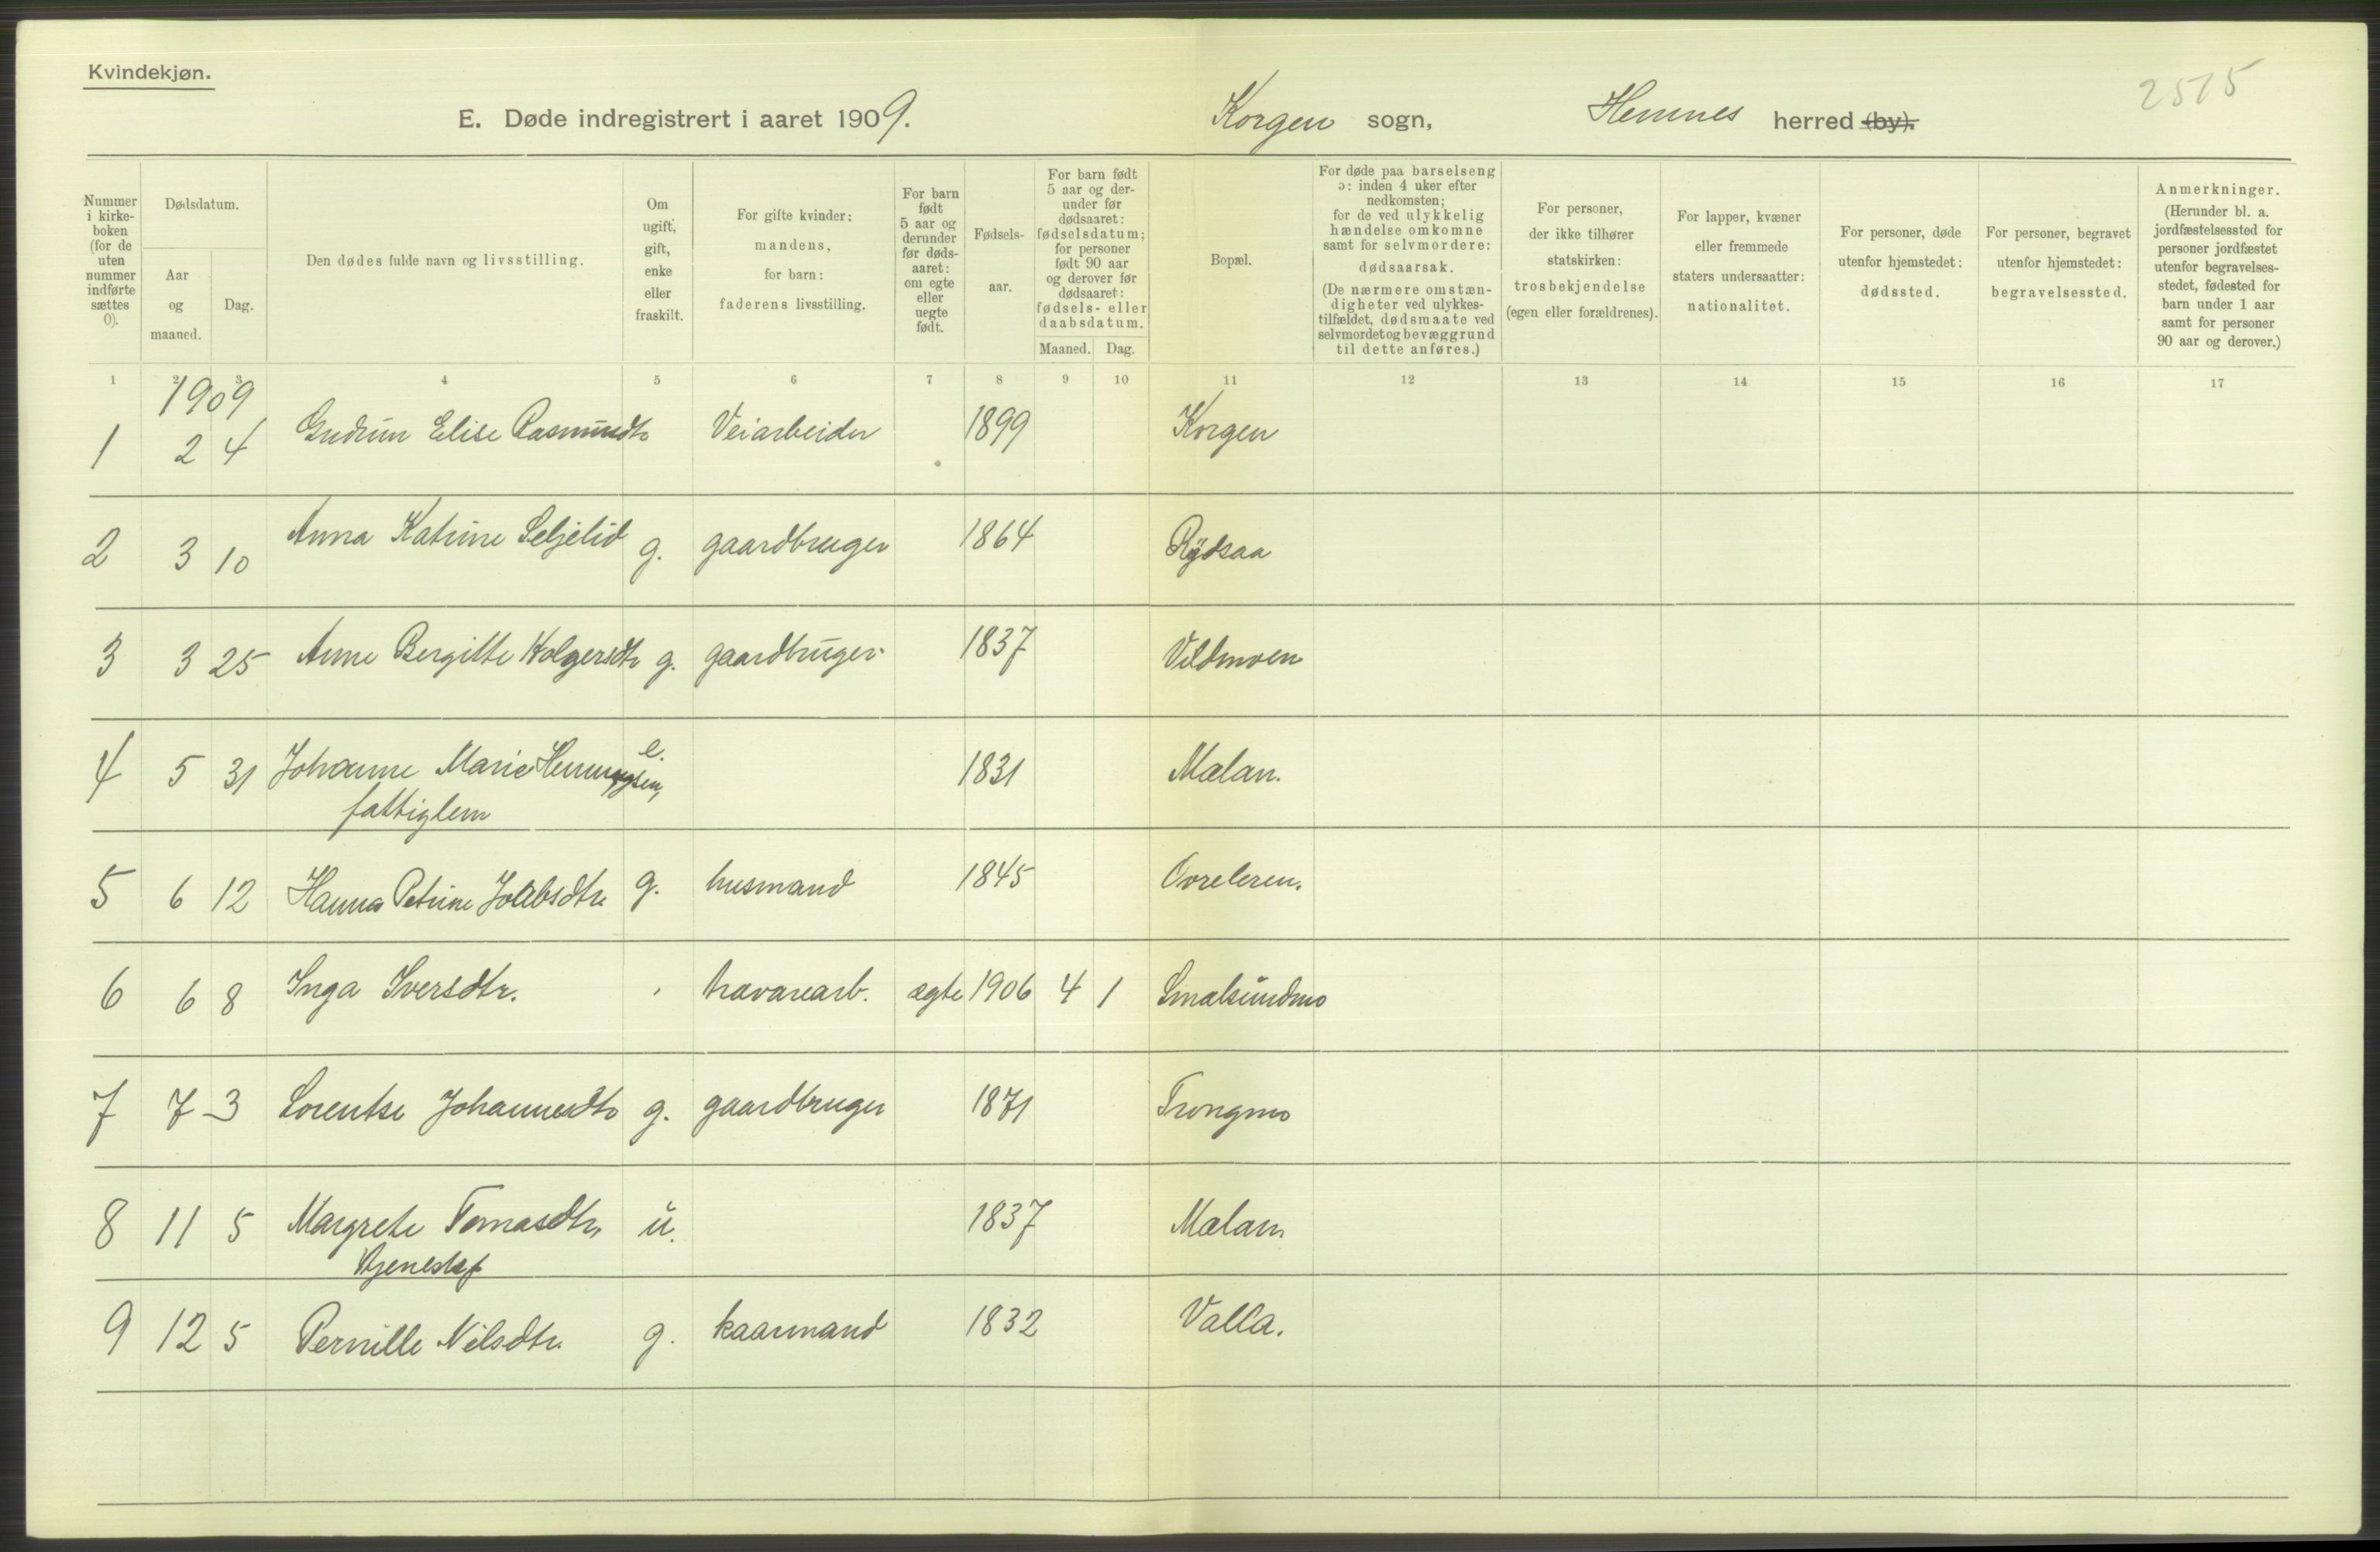 Kvindekjøn.
2515
E. Døde indregistrert i aaret 1909. Korgen sogn, Hemnes herred (by).
Nummer i kirkeboken (for de uten nummer indførte sættes 0).
Dødsdatum.
Aar og maaned.
Dag.
Den dødes fulde navn og livsstilling.
Om ugift, gift, enke eller fraskilt.
For gifte kvinder: mandens, for barn: faderens livsstilling.
For barn født 5 aar og derunder før dødsaaret: om egte eller uegte født.
Fødselsaar.
For barn født 5 aar og derunder før dødsaaret: fødselsdatum; for personer født 90 aar og derover før dødsaaret: fødsels- eller daabsdatum.
Maaned. Dag.
Bopæl.
For døde paa barselseng ɔ: inden 4 uker efter nedkomsten; for de ved ulykkelig hændelse omkomne samt for selvmordere: dødsaarsak. (De nærmere omstændigheter ved ulykkestilfældet, dødsmaate ved selvmordet og bevæggrund til dette anføres.)
For personer, der ikke tilhører statskirken: trosbekjendelse (egen eller forældrenes).
For lapper, kvæner eller fremmede staters undersaatter: nationalitet.
For personer, døde utenfor hjemstedet: dødssted.
For personer, begravet utenfor hjemstedet: begravelsessted.
Anmerkninger. (Herunder bl. a. jordfæstelsessted for personer jordfæstet utenfor begravelsesstedet, fødested for barn under 1 aar samt for personer 90 aar og derover.)
1 2 3 4 5 6 7 8 9 10 11 12 13 14 15 16 17
1909
1 2 4 Gudrun Elise Rasmusdtr Veiarbeider 1899 Korgen
2 3 10 Anna Katrine Seljelid g. gaardbruger 1864 Rydsaa
3 3 25 Anne Bergitte Holgersdtr g. gaardbruger 1837 Vildmoen
4 5 31 Johanne Marie Henningsen, e. 1831 Mælan.
fattiglem
5 6 12 Hanna Petrine Jakobsdtr g. husmand 1845 Ovreleren.
6 6 8 Inga Iversdtr. havarearb. ægte 1906 4 1 Smalsundmo
7 7 3 Lorentse Johannesdtr g. gaardbruger 1871 Trongmo
8 11 5 Margrete Tomasdtr, u. 1837 Mælan
9 12 5 Pernille Nilsdtr. g. kaarmand 1832 Valla.